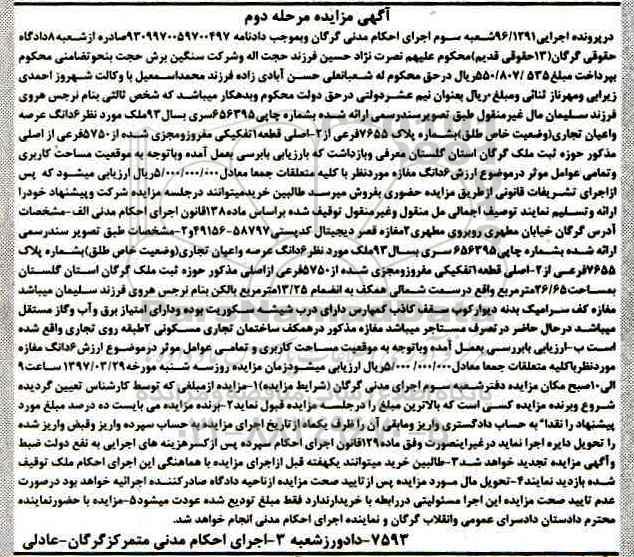 آگهی مزایده مرحله دوم
درپرونده اجرایی۹۶/۱۲۹۱شعبه سوم اجرای احکام مدنی گرگان وبموجب دادنامه ۹۳۰۹۹۷۰۰۵۹۷۰۰۴۹۷صادره ازشعبه۸دادگاه
حقوقی گرگان(۱۳حقوقی قدیم)محکوم علیهم نصرت نژاد حسین فرزند حجت اله وشرکت سنگین برش حجت بنحوتضامنی محکوم
بپرداخت مبلغ۵۳۵ /۵۵۰/۸۰۷ریال درحق محکوم له شعبانعلی حسن آبادی زاده فرزند محمداسمعیل با وکالت شهروز احمدی
زیرابی ومهرناز ثنائی ومبلغ ۰ریال بعنوان نیم عشردولتی درحق دولت محکوم وبدهکار میباشد که شخص ثالثی بنام نرجس هروی
فرزند سلیمان مال غیرمنقول طبق تصویرسندرسمی ارائه شده بشماره چاپی۶۵۶۳۹۵سری بسال۹۳ملک مورد نظر۶دانگ عرصه
واعیان تجاری(وضعیت خاص طلق)بشماره پلاک ۷۶۵۵فرعی از۲-اصلی قطعه۱تفکیکی مفروزومجزی شده از۵۷۵۰فرعی از اصلی
مذکور حوزه ثبت ملک گرگان استان گلستان معرفی وبازداشت که بارزیابی بابرسی بعمل آمده وباتوجه به موقعیت مساحت کاربری
وتمامی عوامل موثر درموضوع ارزش۶دانگ مغازه موردنظر با کلیه متعلقات جمعا معادل۵/۰۰۰/۰۰۰/۰۰۰ریال ارزیابی میشود که پس
ازاجرای تشریفات قانونی ازطریق مزایده حضوری بفروش میرسد طالبین خریدمیتوانند درجلسه مزایده شرکت وپیشنهاد خودرا
ارائه وتسلیم نمایند توصیف اجمالی مل منقول وغیرمنقول توقیف شده براساس ماده۱۳۸قانون اجرای احکام مدنی الف-مشخصات
آدرس گرگان خیابان مطهری روبروی مطهری۲مغازه قصر دیجیتال کدپستی۵۸۷۹۷-۴۹۱۵۶و۲-مشخصات طبق تصویر سندرسمی
ارائه شده بشماره چاپی۶۵۶۳۹۵ سری بسال۹۳ملک مورد نظر۶دانگ عرصه واعیان تجاری(وضعیت خاص طلق)بشماره پلاک
۷۶۵۵فرعی از۲-اصلی قطعه۱تفکیکی مفروزومجزی شده از۵۷۵۰فرعی ازاصلی مذکور حوزه ثبت ملک گرگان استان گلستان
بمساحت۲۶/۶۵مترمربع واقع درسمت شمالی همکف به انضمام ۱۳/۲۵مترمربع بالکن بنام نرجس هروی فرزند سلیمان میباشد
مغازه کف سرامیک بدنه دیوارکوب سقف کاذب کمپارس دارای درب شیشه سکوریت بوده ودارای امتیاز برق و آب وگاز مستقل
میباشد درحال حاضر درتصرف مستاجر میباشد مغازه مذکور درهمکف ساختمان تجاری مسکونی ۲طبقه روی تجاری واقع شده
است ب-ارزیابی بابررسی بعمل آمده وباتوجه به موقعیت مساحت کاربری و تمامی عوامل موثر درموضوع ارزش۶دانگ مغازه
موردنظرباکلیه متعلقات جمعا معادل۵/۰۰۰/ ۰۰۰/۰۰۰ریال ارزیابی میشودزمان مزایده روزسه شنبه مورخه۱۳۹۷/۰۳/۲۹ ساعت۹
الی۱۰صبح مکان مزایده دفترشعبه سوم اجرای مدنی گرگان (شرایط مزایده)۱-مزایده ازمبلغی که توسط کارشناس تعیین گردیده
شروع وبرنده مزایده کسی است که بالاترین مبلغ را درجلسه مزایده قبول نماید۲-برنده مزایده می بایست ده درصد مبلغ مورد
پیشنهاد را نقدا" به حساب دادگستری واریز ومابقی آن را ظرف یکماه ازتاریخ اجرای مزایده به حساب سپرده واریز وقبض واریز شده
را تحویل دایره اجرا نماید درغیراینصورت وفق ماده۱۲۹قانون اجرای احکام سپرده پس ازکسرهزینه های اجرایی به نفع دولت ضبط
وآگهی مزایده تجدید خواهد شد۳-طالبین خرید میتوانند یکهفته قبل ازاجرای مزایده با هماهنگی این اجرای احکام ملک توقیف
شده بازدید نمایند۴-تحویل مال مورد مزایده پس ازتایید صحت مزایده ازناحیه دادگاه صادرکننده اجرائیه خواهد بود درصورت
عدم تایید صحت مزایده این اجرا مسئولیتی دررابطه با خریدارندارد فقط مبلغ تودیع شده عودت میشود۵-مزایده با حضورنماینده
محترم دادستان دادسرای عمومی وانقلاب گرگان و نماینده اجرای احکام مدنی انجام خواهد شد.
۷۵۹۳-دادورزشعبه ۳-اجرای احکام مدنی متمرکزگرگان-عادلی